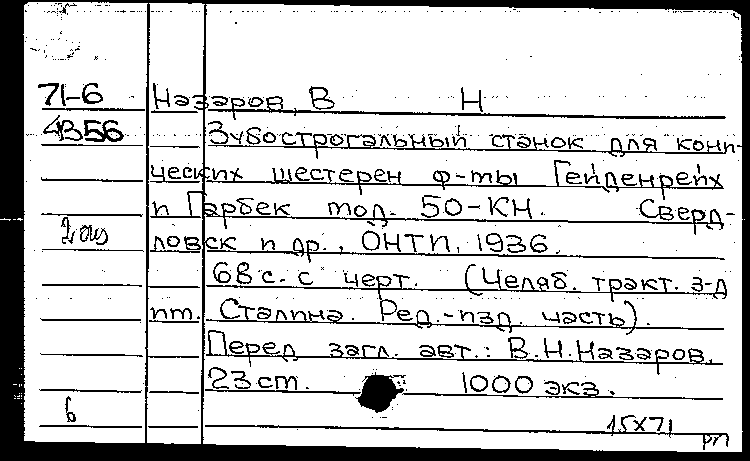 71-6 Назаров, В Н
4356 Зубострогальный станок для кони-
ческих шестерен ф-ты Гейденрейх
и Гарбек мод. 50-КН. Сверд-
2 экз ловск и др., ОНТИ, 1936.
68 с. с черт. (Челяб. тракт. з-д
им. Сталина. Ред.-изд. часть).
Перед загл. авт.: В.Н.Назаров.
23 см. 1000 экз.
б 15X71